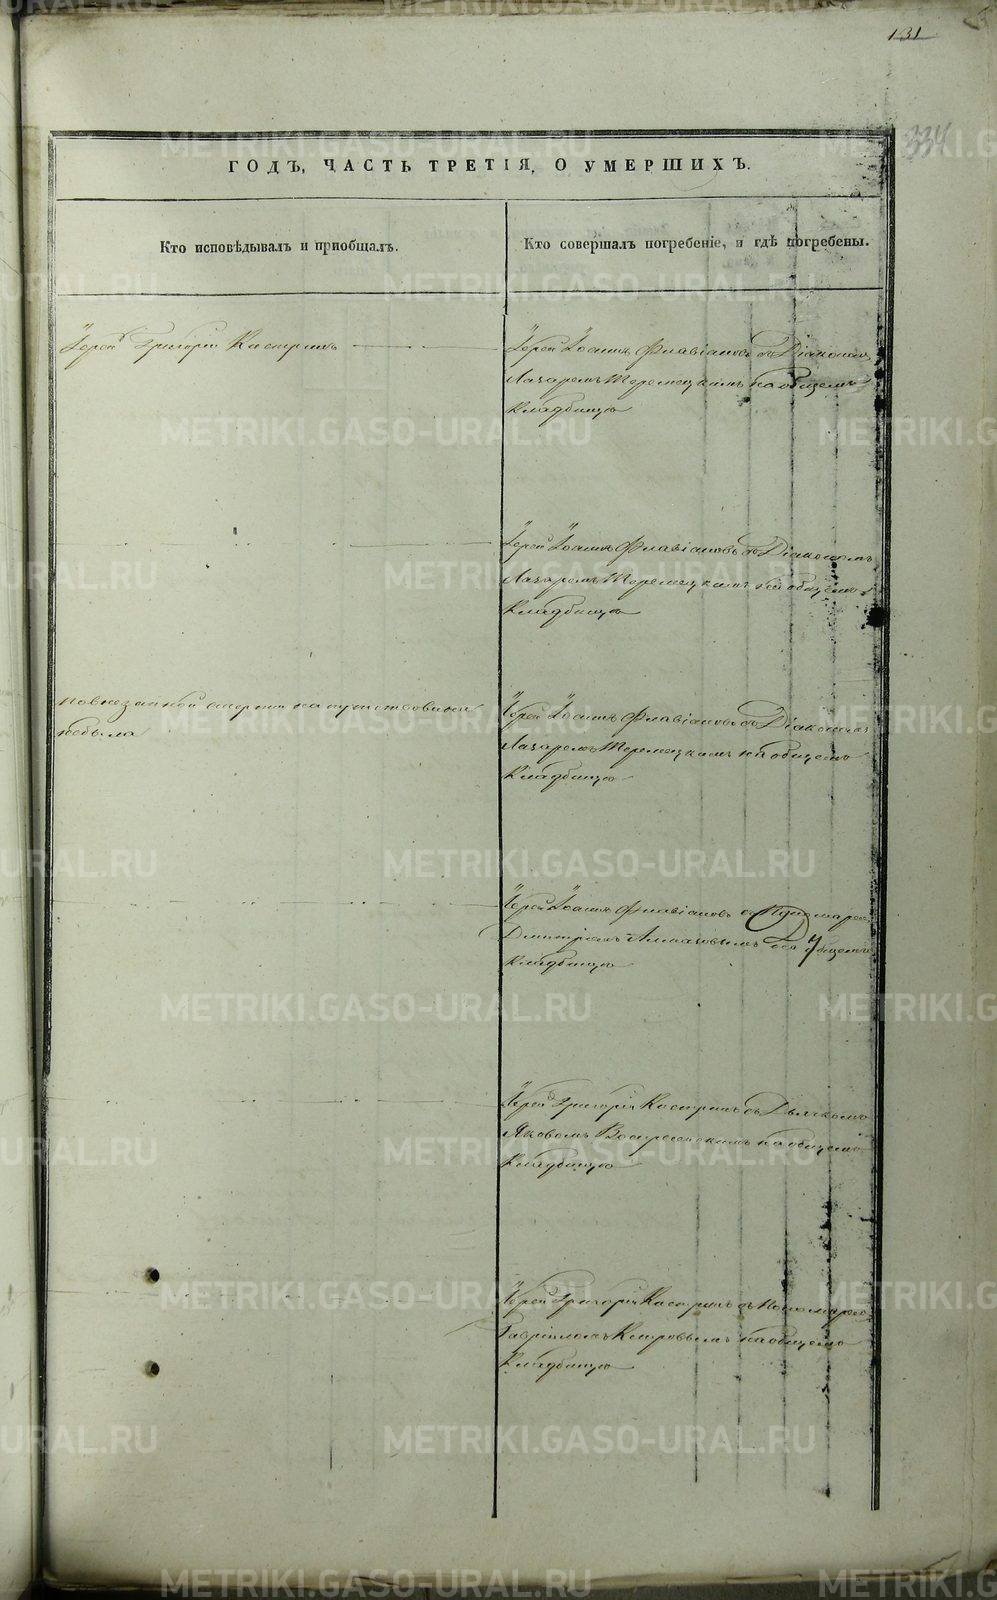 131
334
ГОДЪ, ЧАСТЬ ТРЕТІЯ, О УМЕРШИХЪ.
Кто исповѣдывалъ и пріобщалъ.
Кто совершалъ погребеніе, и гдѣ погребены.
Іерей Григорій Кастринъ
Іерей Іоаннъ Флавіановъ съ Діакономъ
Лазаремъ Теремецкимъ на общемъ
Кладбищѣ
Іерей Іоаннъ Флавіановъ съ Діакономъ
Лазаремъ Теремецкимъ на общемъ
Кладбищѣ
не было
Іерей Іоаннъ Флавіановъ съ Діакономъ
Лазаремъ Теремецкимъ на общемъ
Кладбищѣ
Іерей Іоаннъ Флавіановъ съ Пономаремъ
Димитріемъ общемъ
Кладбищѣ
Іерей Григорій Кастринъ съ Дьячкомъ
Яковомъ Воскресенскимъ на общемъ
Кладбищѣ
Іерей Григорій Кастринъ съ Пономаремъ
Гавріиломъ на общемъ
Кладбищѣ
METRIKI.GASO-URAL.RU